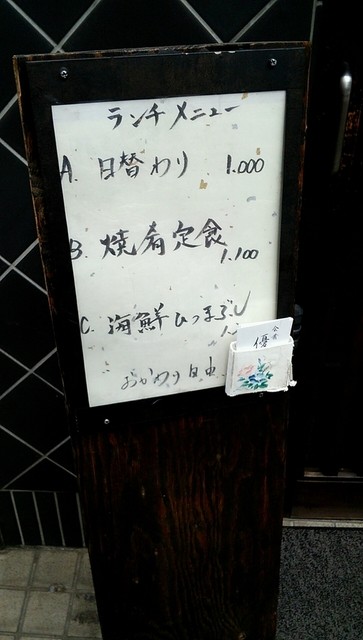 ランチメニュー
A. 日替わり 1.000
B. 焼肴定食 1.100
C. 海鮮ひつまぶし
1.
おかわり自由
優